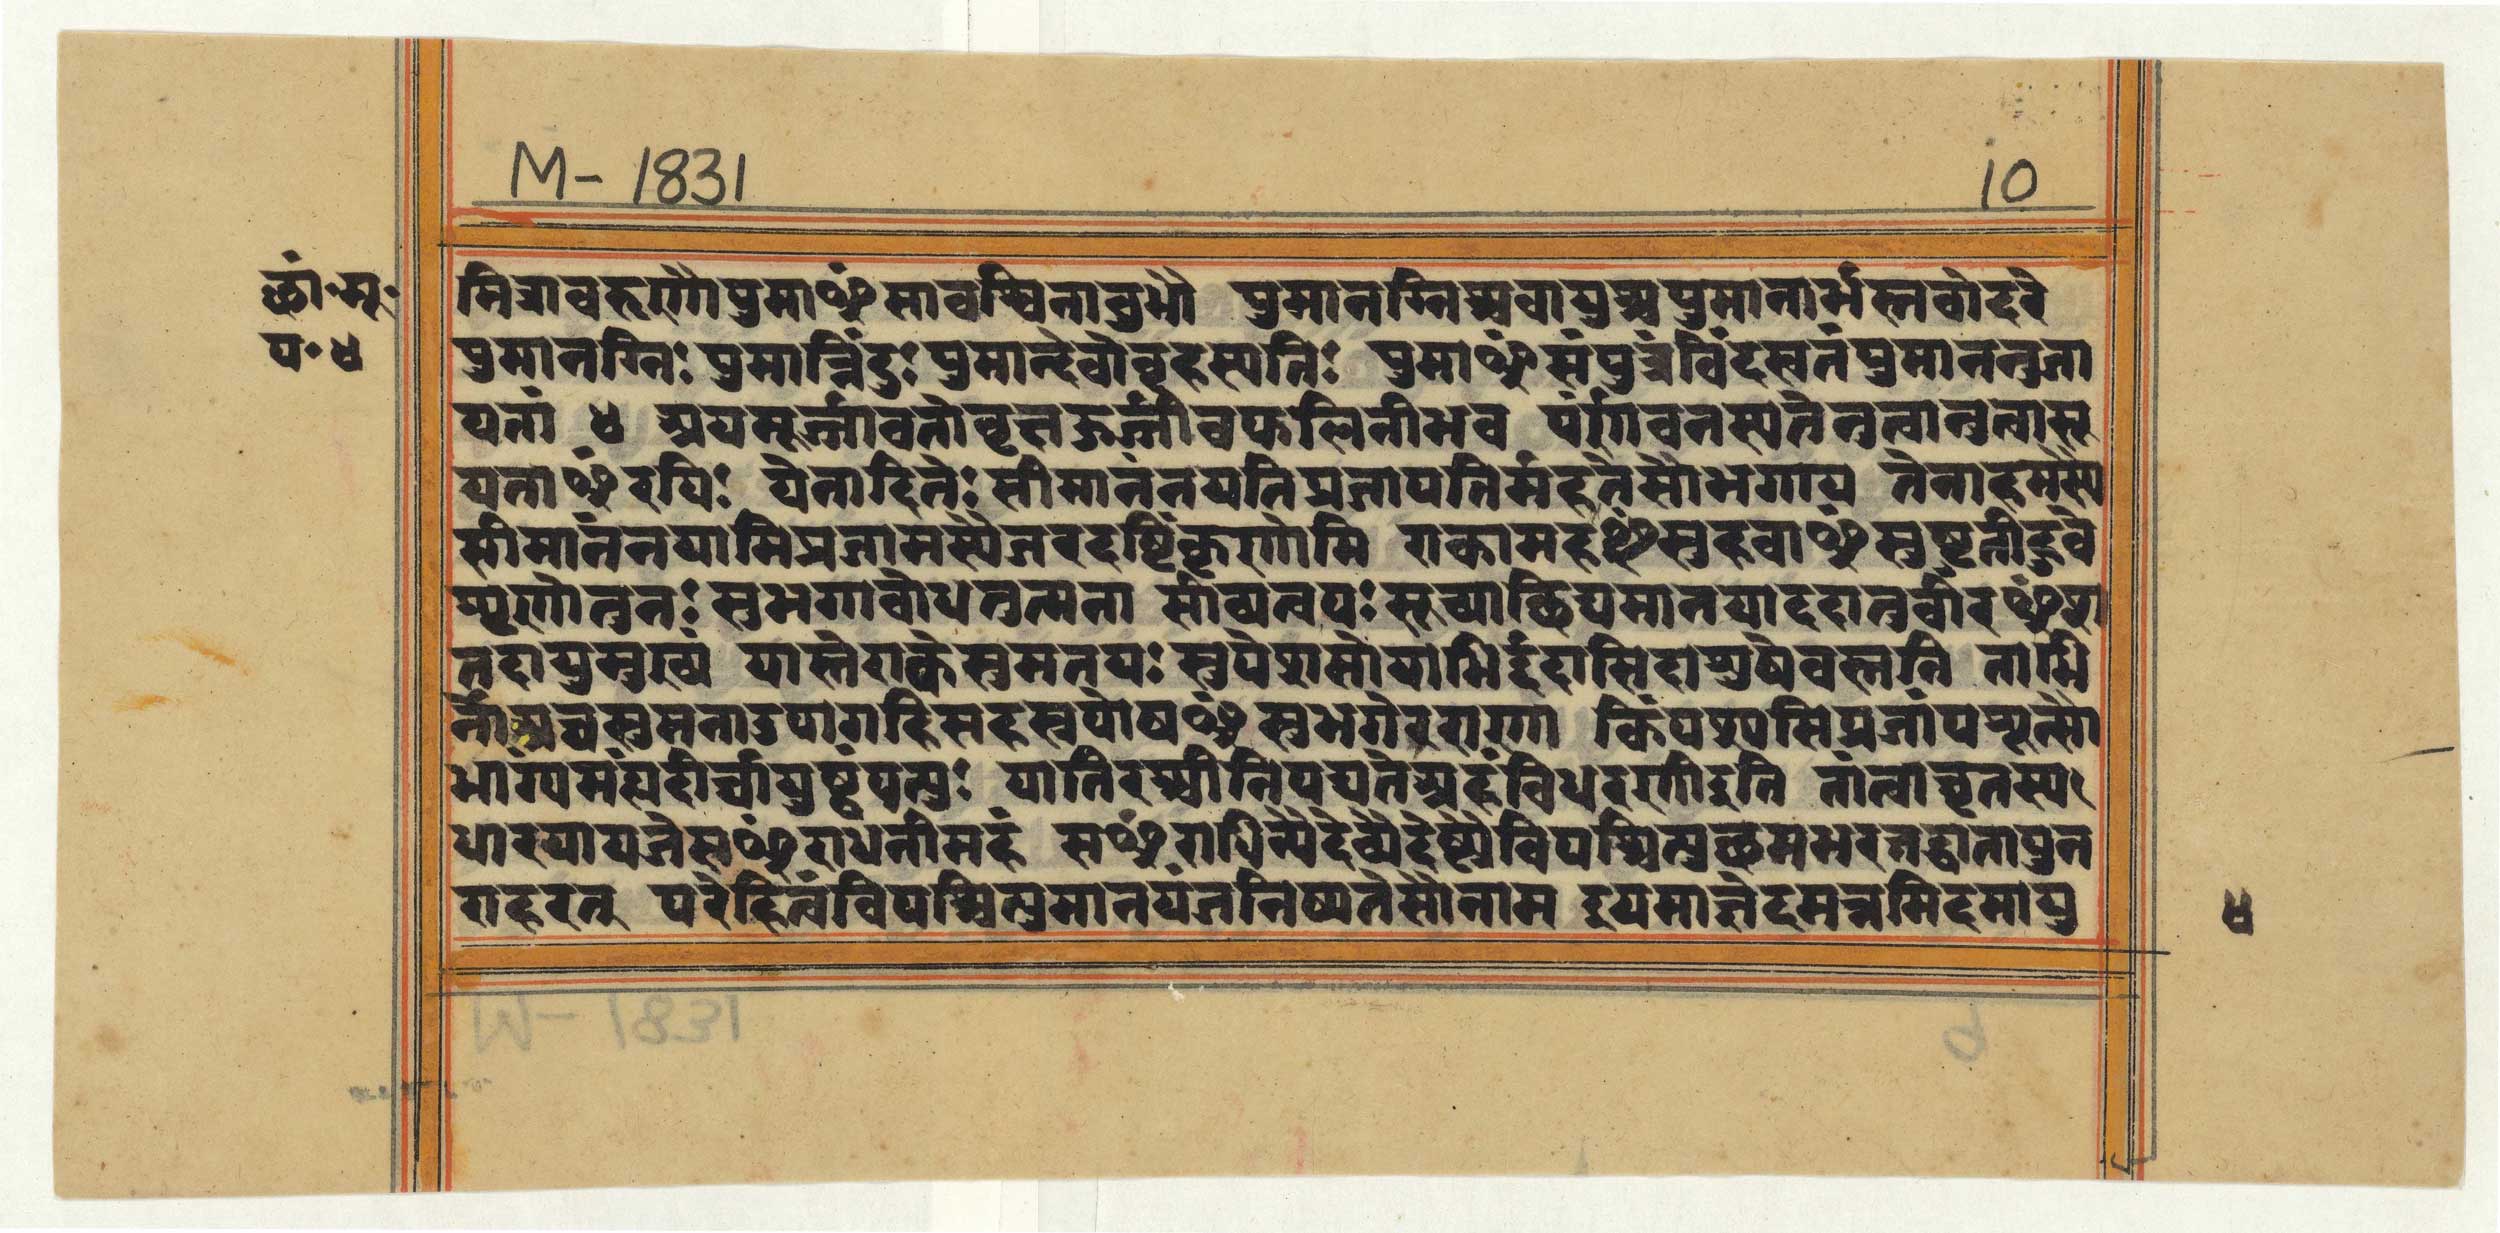 M- 1831
10
छां॰मृ॰
प॰४
मित्रावरुणौपुमाꣳसावश्विनावुभौ पुमानग्निश्चवायुश्चपुमानार्भस्तवोदरे
पुमानग्निः पुमानिंद्रः पुमान्देवोवृहस्पतिः पुमाꣳसंपुत्रंविंदस्वतंपुमाननुजा
यतां ४ अयमूर्ज्जावतोवृक्षऊर्ज्जीवफलिनीभव पर्णंवनस्पतेनुत्वानुत्वासू
यताꣳरयिः येनादितेः सीमानंनयतिप्रजापतिर्महतेसौभगाय तेनाहमस्यै
सीमानंनयामिप्रजामस्यैजरदष्टिंकृणोमि राकामहꣳसुहवाꣳसुष्टुतीहुवे
शृणोतुनः सुभगावोधतुत्मना सीव्यत्वपः सूच्याछिद्यमानयाददातुवीरꣳश
तदायुमुख्यं यास्तेराकेसुमतयः सुपेशसोयाभिर्द्ददासिदाशुषेवसूनि ताभि
र्नोअद्यसुमनाउपागहिसहस्रपोषꣳसुभगेरराणा किंपश्यसिप्रजांपशून्सौ
भाग्यंमह्यंदीर्घायुष्ट्वंपत्युः यातिरश्चीनिपद्यतेअहंविधरणीइति तांत्वाघृतस्य
धारयायजेसꣳराधनीमहं सꣳराधिन्यैदेव्यैदेष्ट्र्यैविपश्चित्पुछमभरत्तद्धातापुन
राहरत् परेहित्वंविपश्चित्पुमानयंजनिष्यतेसौनाम इयमाज्ञेदमन्नमिदमायु
४